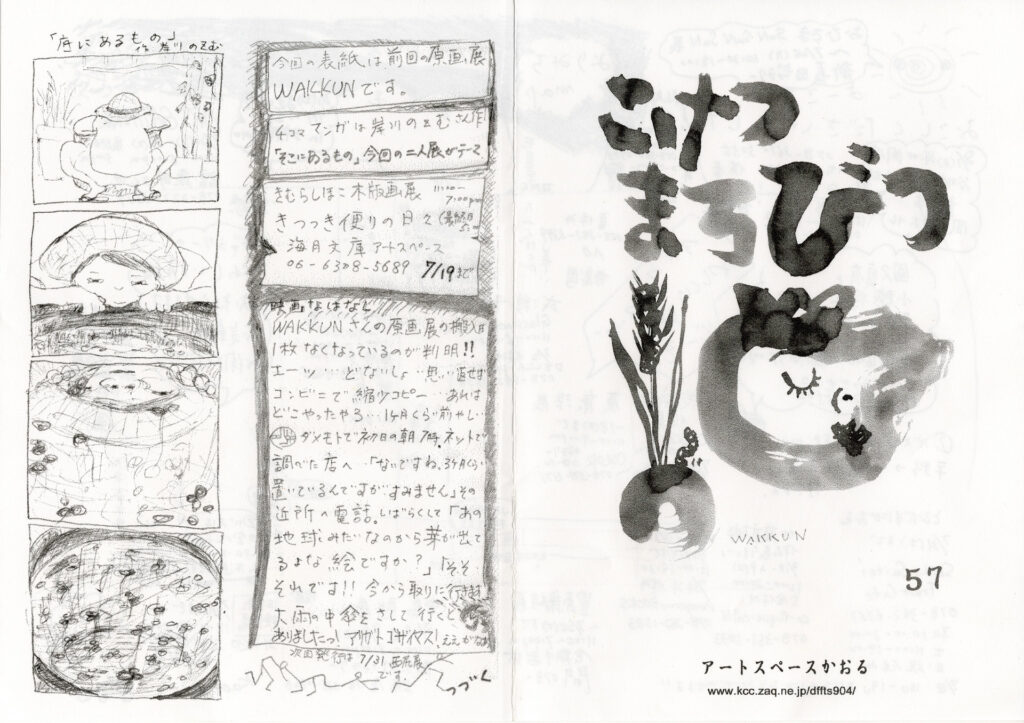 「庭にあるもの」
作 岸川のぞむ
今回の表紙は前回の原画展
WAKKUNです。
4コママンガは岸川のぞむさん作
「そこにあるもの」今回の二人展がテーマ
きむらしほこ木版画展
11:00〜
7:00pm
きつつき便りの日々
(最終日
海月文庫アートスペース
06-6308-5689 7/19まで
映画なはなど
WAKKUNさんの原画展の搬入日
1枚なくなっているのが判明!!
エーッ…どないしょ…思い返せば
コンビニで縮少コピー…あれは
どこやったやろ…1ヶ月くらい前やし…
ダメモトで初日の朝7時。ネットで
調べた店へ…「ないですね。3ヶ月くらい
置いているんですがすみません」その
近所へ電話。しばらくして「あの
地球みたいなのから葉が出て
るよな絵ですか?」「そそ、
それです!!今から取りに行きます」
大雨の中傘をさして行くと
ありましたっ!アリガトゴザイヤス!
次回発行は7/31
です。
つづく
こけつ
まろびつ
WAKKUN
57
アートスペースかおる
www.kcc.zaq.ne.jp/dffts904/